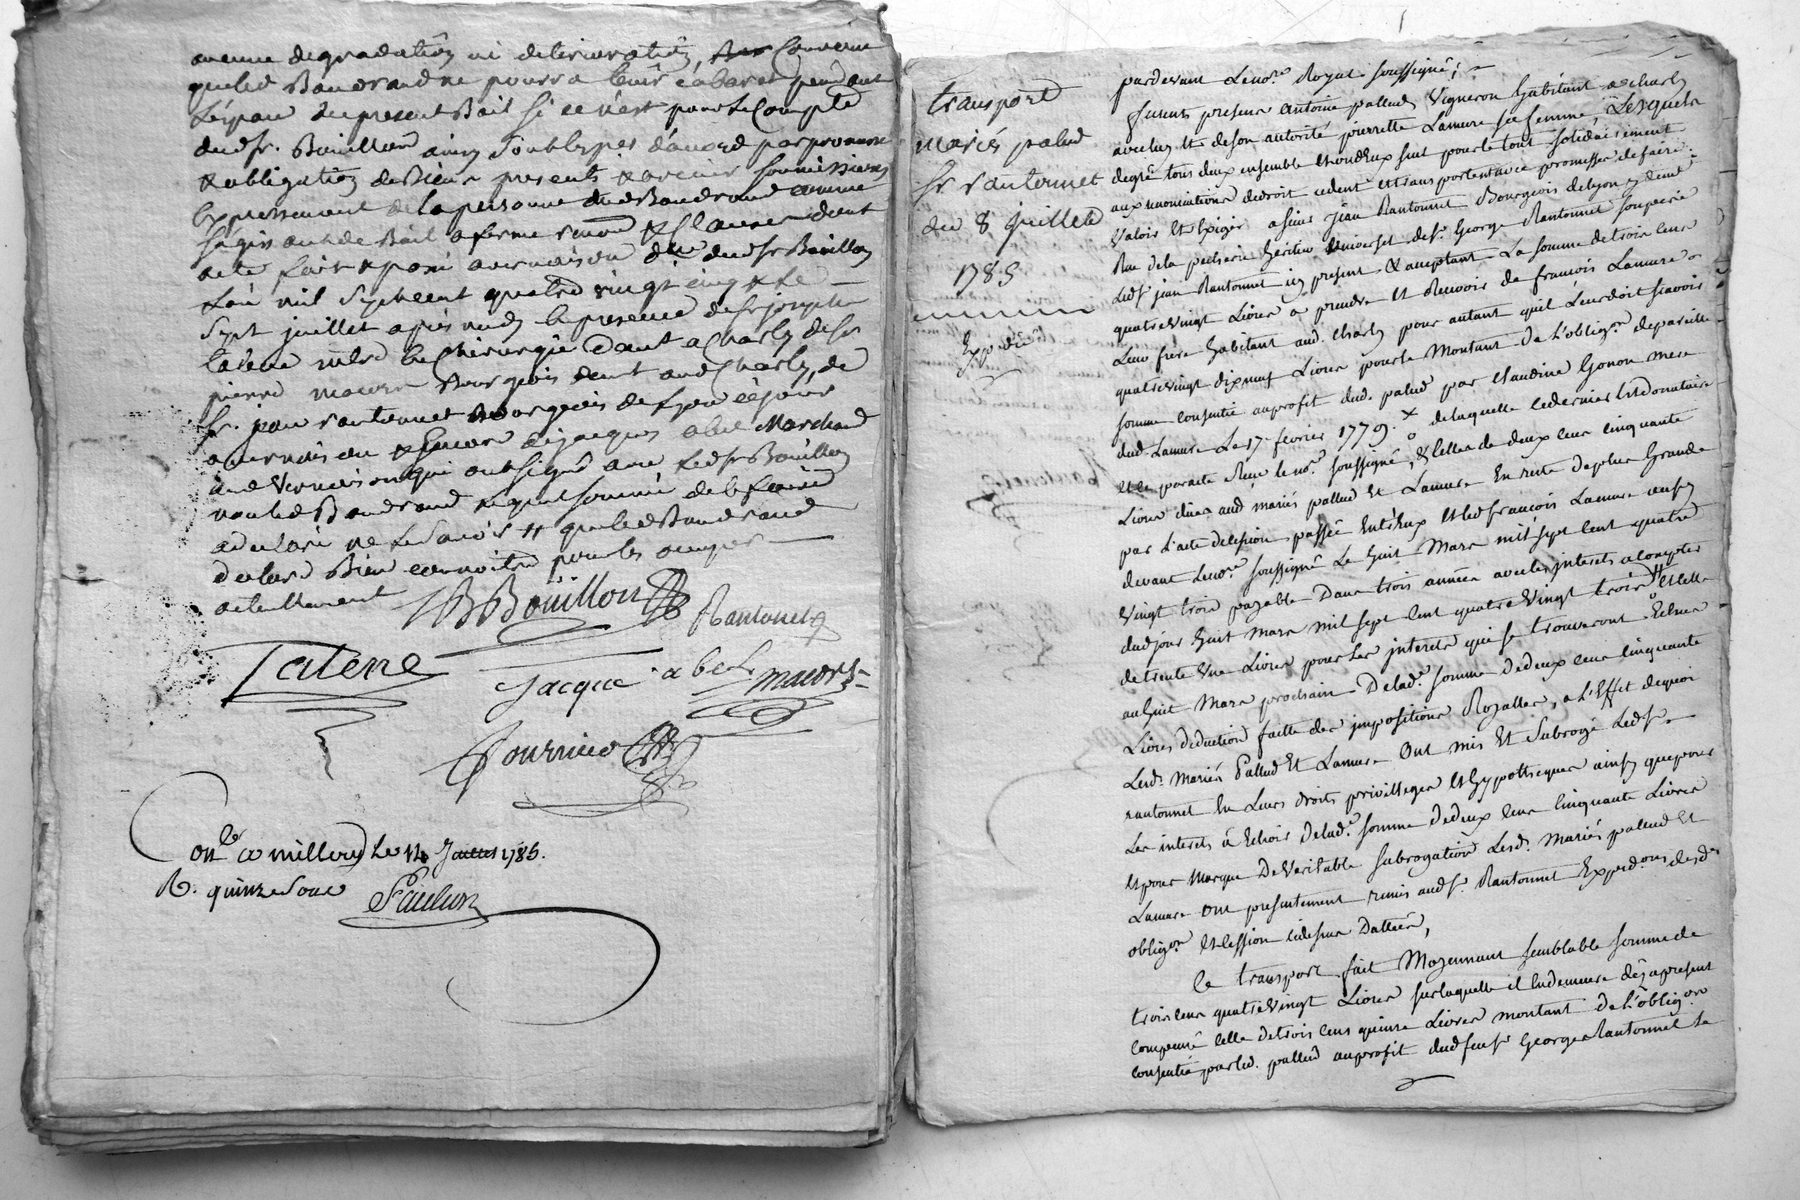 aucune degradation ni deterioration, convenu
que led Baudrand ne pourra tenir cabaret pendant
l'espace du present Bail si ce n'est pour le Compte
dud sr. Bouillon ainsy sont les parties d'accord par promesse
& obligation de Biens presents & avenir soumissions
expressement de la personne dud Baudrand comme
s'agissant de Bail a ferme renon & clauses dont
acte fait & passé a vernaison dud sr Bouillon
L'an mil sept cent quatre vingt cinq & le
sept juillet après midy en presence de sr joseph
Latene me en Chirurgie dem.t a Charly de sr
pierre macors Bourgeois dem.t aud Charly, de
sr. jean rantonnet Bourgeois de Lyon
a vernaison & encore de jacques abel Marchand
aud Vernaison qui ont signé avec led sr Bouillon
non led Baudrand requis sommé de le faire
a declaré ne le savoir // que led Baudrand
declare Bien connoitre pour les occuper
actuellement
BBouillon Rantonnet
Latene Jacque abel macors
Fourrier
Con.lé a millery Le 14 Juillet 1785.
R. quinze sous
Paulun
transport
mariés palud
sr rantonnet
du 8 juillet
1785
Expédié
pardevant Le no.re Royal soussigné;
furent presens antoine pallud Vigneron habitant a Charly
avec luy et de son autorité pierrette Lamure sa femme, Lesquels
de gré tous deux ensemble et un d'Eux seul pour le tout solidairement
aux renonciations de droit cedent et transportent avec promesse de faire
valoir et Exiger a sieur jean Rantonnet Bourgeois de lyon y dem.t
Rue de la pecherie héritier universel de sr. George Rantonnet son pere
led sr jean Rantonnet icy present & acceptant La somme de trois cens
quatre vingt Livres a prendre et Recevoir de francois Lamure
Leur frere habitant aud. Charly pour autant qu'il Leur doit scavoir
quatre vingt dix neuf Livres pour le Montant de L'oblig.on de pareille
somme consentie au profit dud. palud par Claudine Gonon mere
dud. Lamure Le 17 fevrier 1779. × de laquelle ce dernier est donataire
et la parate Reçue le no.re soussigné, & celle de deux cens cinquante
Livres dues aud mariés pallud Et Lamure En reste de plus Grande
par L'acte de cession passée Entr'Eux et led francois Lamure
devant Le no.re soussigné Le huit Mars mil sept cent quatre
vingt trois payable Dans trois années avec les interets a compter
dud jour huit Mars mil sept cent quatre vingt trois // et celle
de trente une Livres pour Les interets qui se trouveront Echus
au huit Mars prochain De lad.e somme de deux cens cinquante
Livres déduction faitte des impositions Royalles, a L'Effet de quoi
Lesd. Mariés Pallud Et Lamure Ont mis Et Subrogé Led sr.
rantonnet En Leurs droits privileges Et hypotheques ainsy que pour
Les interets à Echoir de lad.e somme de deux cens cinquante Livres
Et pour Marque De Veritable subrogation Lesd. Mariés pallud Et
Lamure Ont presentement remis aud sr. Rantonnet Exped.ons desd.
oblig.on Et Cession ci dessus Dattées,
Ce transport fait Moyennant semblable somme de
trois cens quatre vingt Livres sur laquelle il Endemeure déja present
compensé celle de trois cens quinze Livres montant de L'oblig.on
consentie par led. pallud au profit dud feu sr George Rantonnet le